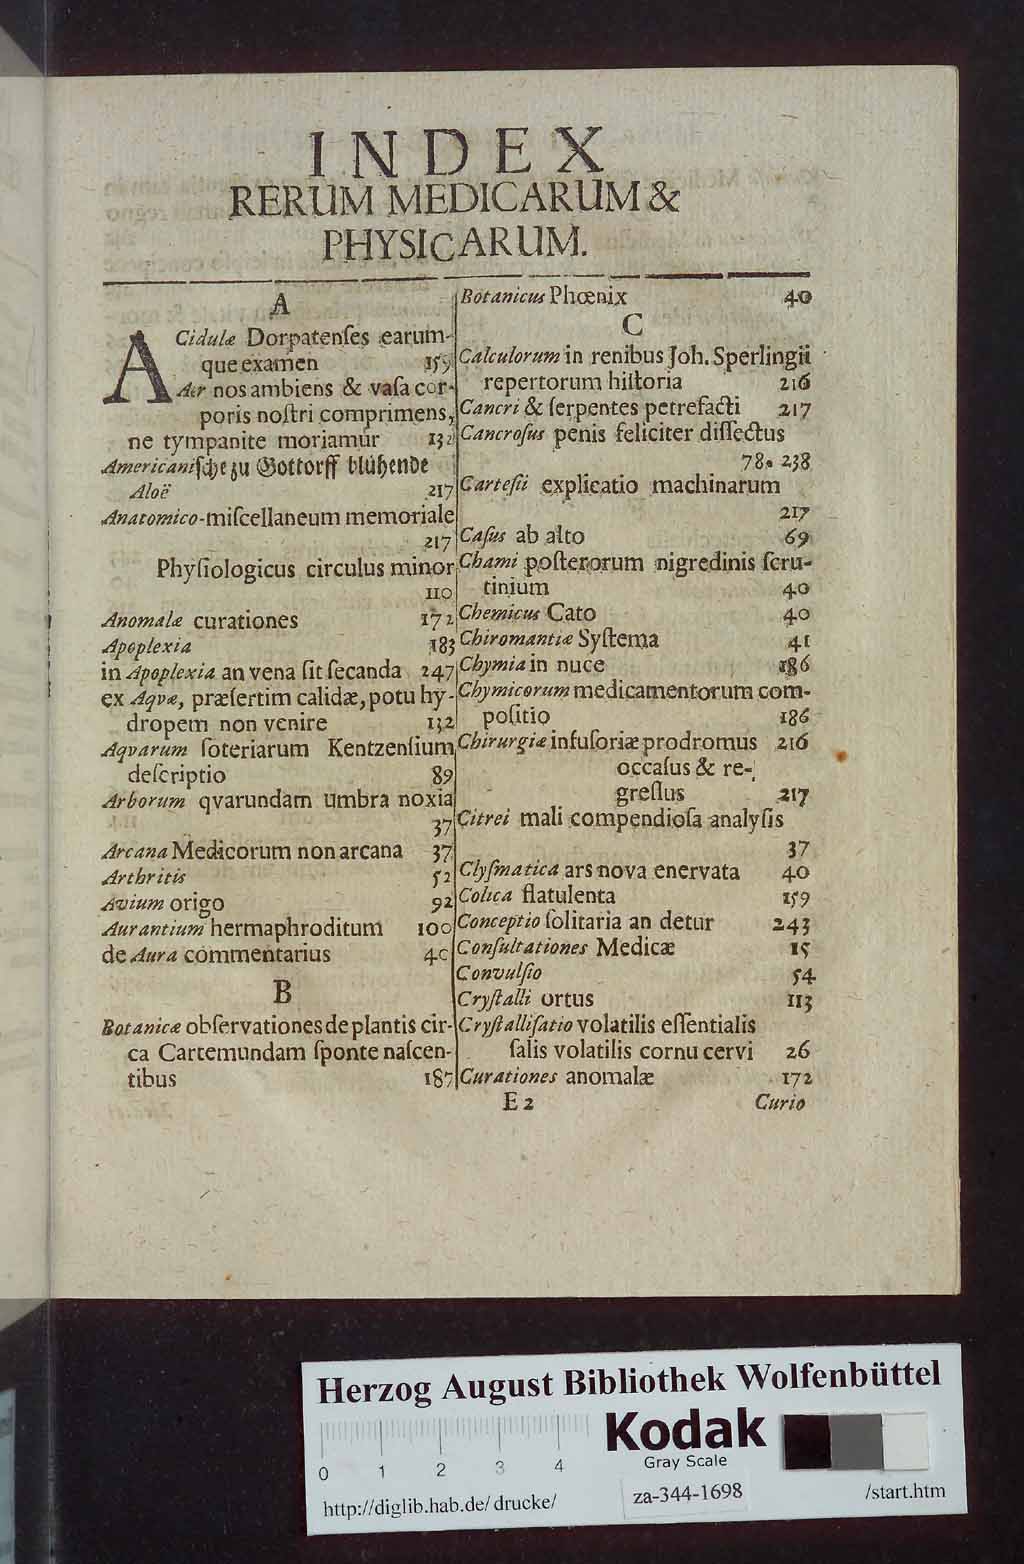 INDEX
RERUM MEDICARUM &
PHYSICARUM.
A
ACidulæ Dorpatenſes earum-
que examen 159
Aër nos ambiens & vaſa cor-
poris noſtri comprimens,
ne tympanite moriamur 132
Americaniſche zu Gottorff blühende
Aloë 217
Anatomico-miſcellaneum memoriale
217
Phyſiologicus circulus minor
110
Anomalæ curationes 172
Apoplexia 183
in Apoplexia an vena ſit ſecanda 247
ex Aqvæ, præſertim calidæ, potu hy-
dropem non venire 132
Aqvarum ſoteriarum Kentzenſium
deſcriptio 89
Arborum qvarundam umbra noxia
37
Arcana Medicorum non arcana 37
Arthritis 52
Avium origo 92
Aurantium hermaphroditum 100
de Aura commentarius 40
B
Botanicæ obſervationes de plantis cir-
ca Cartemundam ſponte naſcen-
tibus 187
Botanicus Phœnix 40
C
Calculorum in renibus Joh. Sperlingii
repertorum hiſtoria 216
Cancri & ſerpentes petrefacti 217
Cancroſus penis feliciter diſſectus
78. 238
Carteſii explicatio machinarum
217
Caſus ab alto 69
Chami poſterorum nigredinis ſcru-
tinium 40
Chemicus Cato 40
Chiromantiæ Syſtema 41
Chymia in nuce 186
Chymicorum medicamentorum com-
poſitio 186
Chirurgiæ infuſoriæ prodromus 216
occaſus & re-
greſſus 217
Citrei mali compendioſa analyſis
37
Clyſmatica ars nova enervata 40
Colica flatulenta 159
Conceptio ſolitaria an detur 243
Conſultationes Medicæ 15
Convulſio 54
Cryſtalli ortus 113
Cryſtalliſatio volatilis eſſentialis
ſalis volatilis cornu cervi 26
Curationes anomalæ 172
E 2 Curio
Herzog August Bibliothek Wolfenbüttel
Kodak
Gray Scale
0 1 2 3 4
http://diglib.hab.de/drucke/ za-344-1698 /start.htm